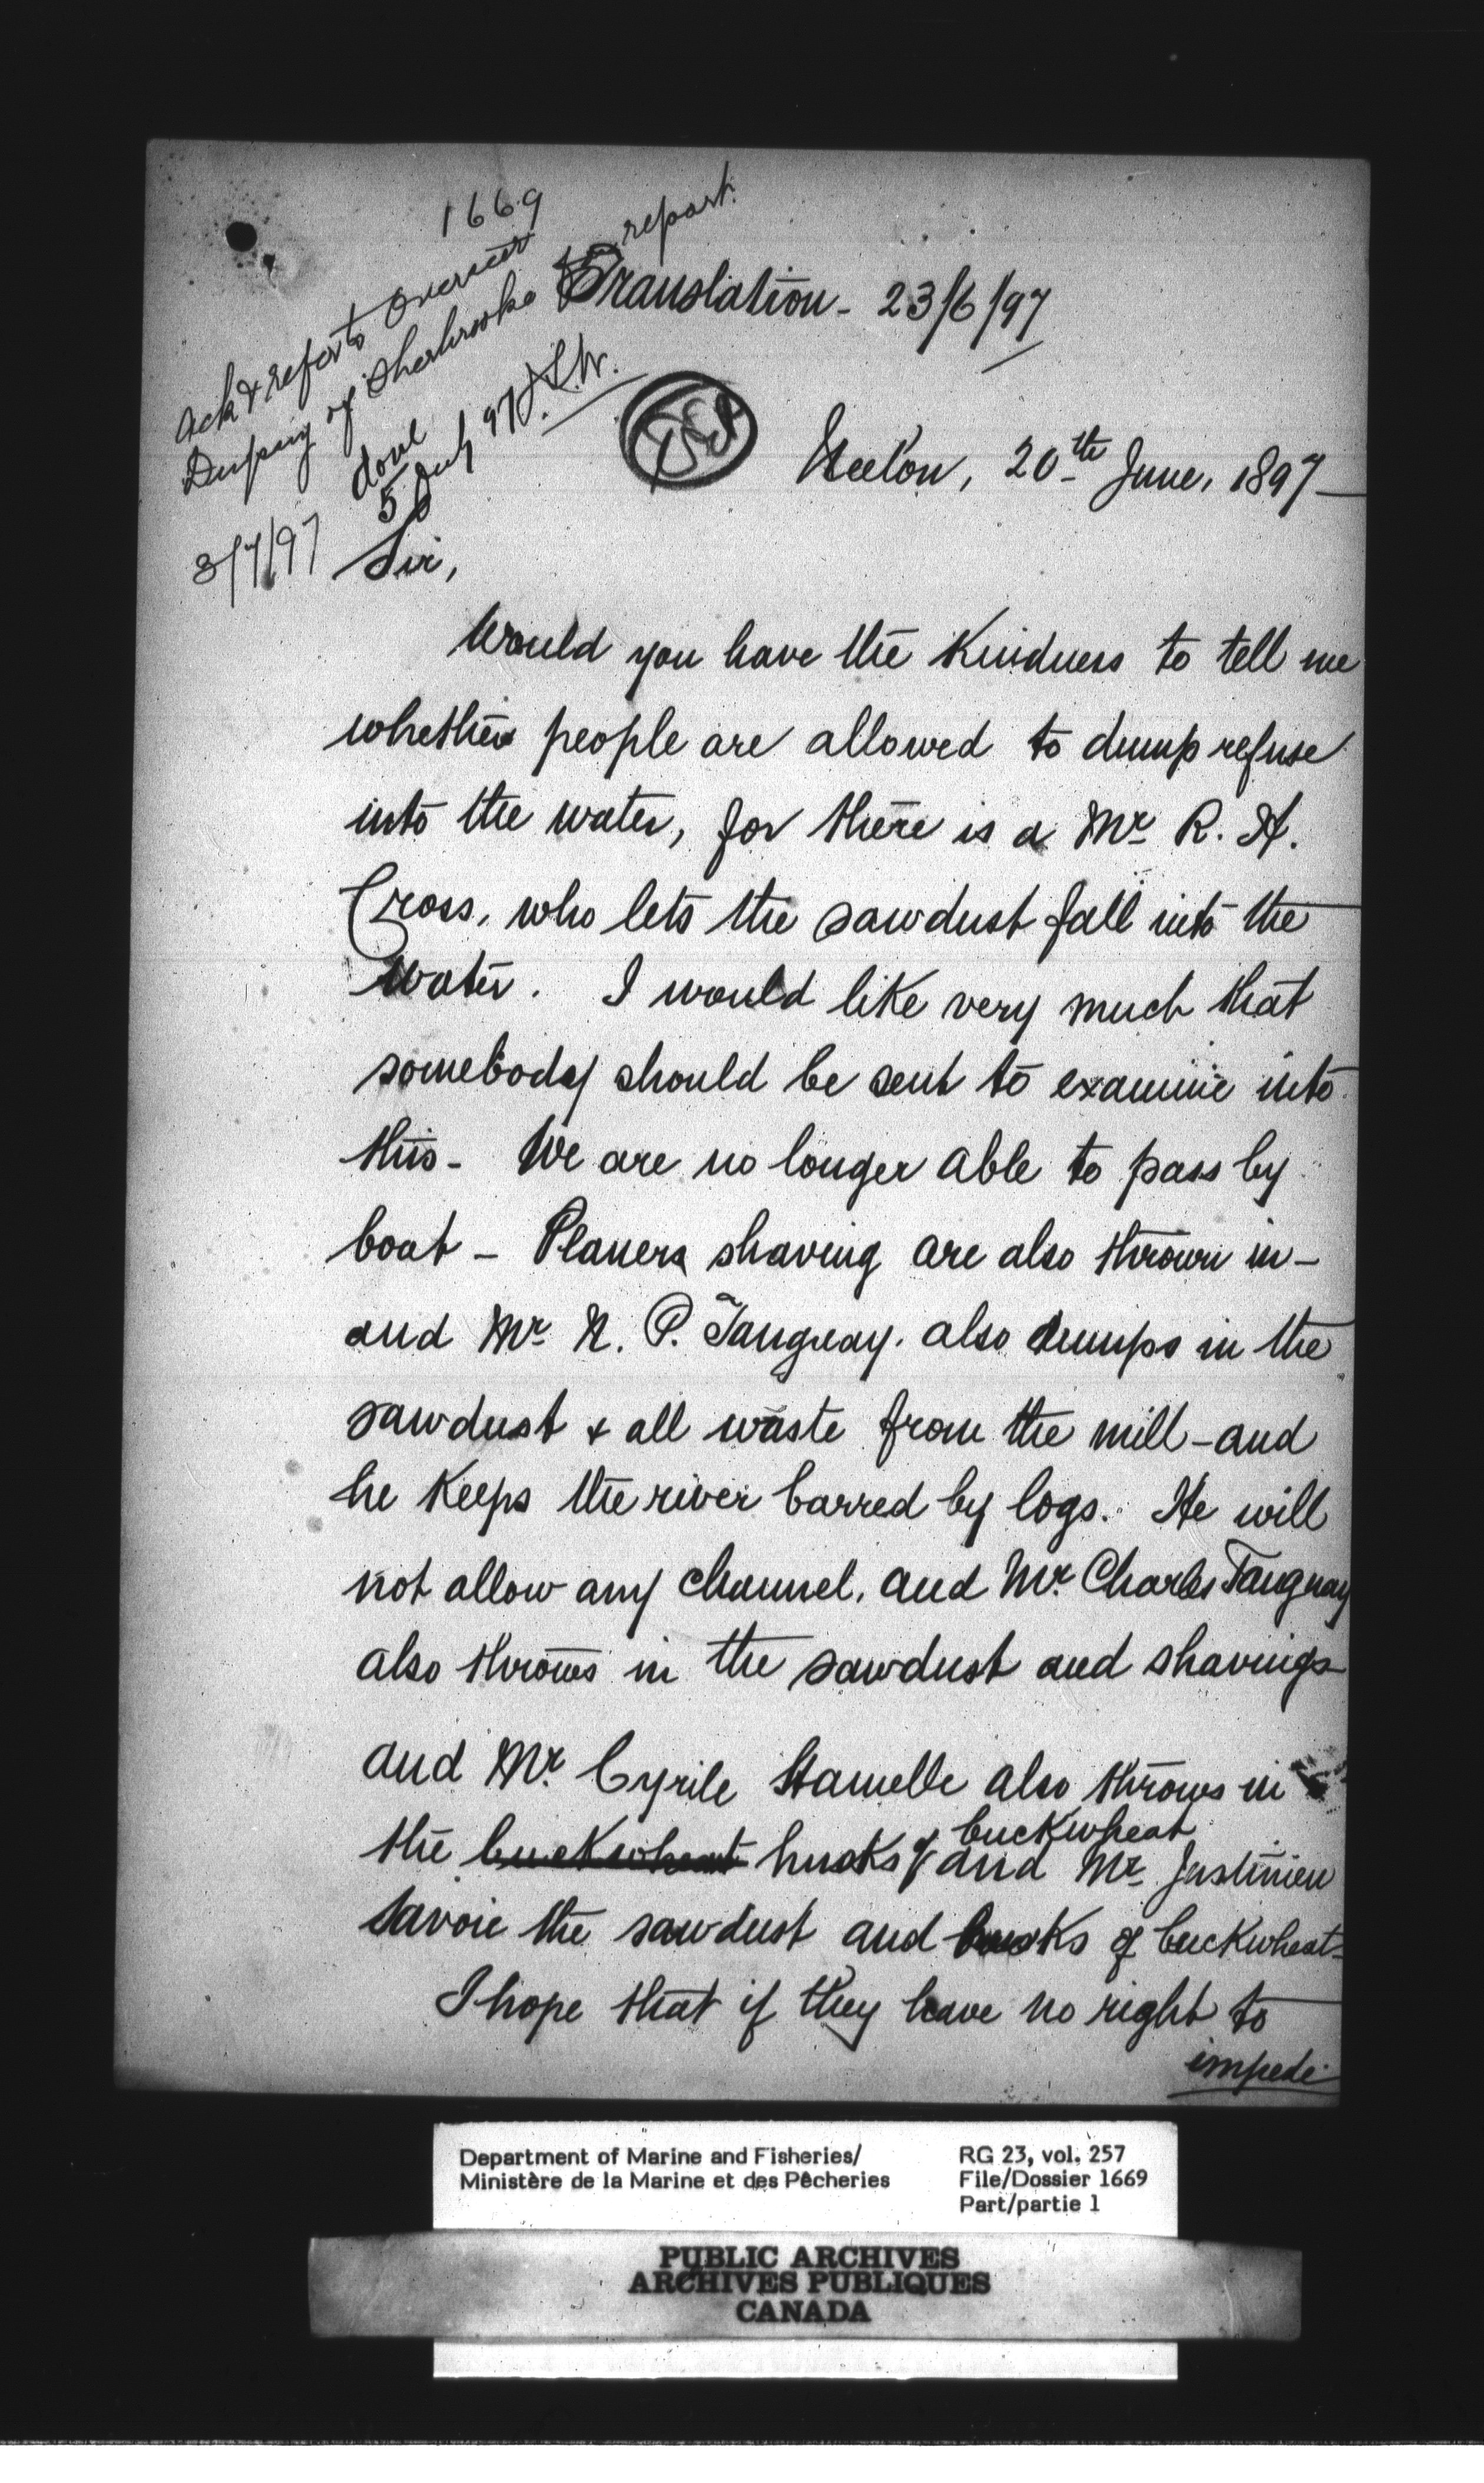 1669
Ack & refer to Overseer
Dupuy of Sherbrooke for report.
done
5 July 97 J.L.W.
3/7/97
Translation - 23/6/97
Weedon, 20th June, 1897 -
Sir,
Would you have the kindness to tell me
whether people are allowed to dump refuse
into the water, for there is a Mr R. H.
Cross, who lets the sawdust fall into the
water. I would like very much that
somebody should be sent to examine into
this - We are no longer able to pass by
boat - Planers shaving are also thrown in -
and Mr N. P. Tanguay. also dumps in the
sawdust & all waste from the mill - and
he keeps the river barred by logs. He will
not allow any channel, and Mr Charles Tanguay
also throws in the sawdust and shavings
and Mr. Cyrile also throws in
the buckwheat husks of buckwheat and Mr Justinien
Savoie the sawdust and husks of buckwheat -
I hope that if they have no right to
impede
Department of Marine and Fisheries/
Ministère de la Marine et des Pêcheries
RG 23, vol. 257
File/Dossier 1669
Part/partie 1
PUBLIC ARCHIVES
ARCHIVES PUBLIQUES
CANADA